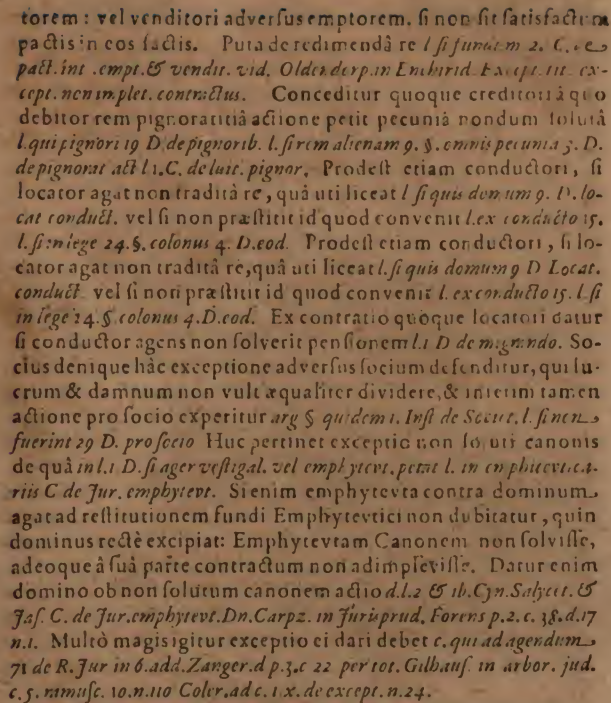 torem : vel venditori adversus emptorem, si non sit satisfactum
pactis in eos factis. Puta de redimendâ re l si fundum 2. C. de
pact. int. empt. & vendit. vid. Oldenderp. in Enchirid. Except. tit. ex-
cept. non implet. contractus. Conceditur quoque creditori à quo
debitor rem pignoratitiâ actione petit pecuniâ nondum solutâ
l. qui pignori 19 D. de pignorib. l. si rem alienam 9. §. omnis pecunia 3. D.
de pignorat act l 1. C. de luit. pignor. Prodest etiam conductori, si
locator agat non traditâ re, quâ uti liceat l si quis domum 9. D. lo-
cat conduct. vel si non præstitit id quod convenit l. ex conducto 15.
l. si in lege 24. §. colonus 4. D. eod. Prodest etiam conductori, si lo-
cator agat non traditâ re, quâ uti liceat l. si quis domum 9 D Locat.
conduct vel si non præstitit id quod convenit l. ex conducto 15. l. si
in lege 24. §. colonus 4. D. eod. Ex contratio quoque locatori datur
si conductor agens non solverit pensionem l. 1 D de migrando. So-
cius denique hâc exceptione adversus socium defenditur, qui lu-
crum & damnum non vult æqualiter dividere, & interim tamen
actione pro socio experitur arg § quidem 1. Inst de Societ. l. si non
fuerint 29 D. pro socio Huc pertinet exceptio non soluti canonis
de quâ in l. 1 D. si ager vectigal. vel emphytevt. petat l. in emphitevtica-
riis C de Jur. emphytevt. Si enim emphytevta contra dominum
agat ad restitutionem fundi Emphytevtici non dubitatur, quin
dominus rectè excipiat: Emphytevtam Canonem non solvisse,
adeoque â suâ parte contractum non adimplevisse. Datur enim
domino ob non solutum canonem actio d. l. 2 & ib. Cyn. Salycet. &
Jas. C. de Jur. emphytevt. Dn. Carpz. in Jurisprud. Forens p. 2. c. 38. d. 17
n. 1. Multò magis igitur exceptio ei dari debet c. qui ad agendum
71 de R. Jur in 6. add. Zanger. d p. 3. c 22 per tot. Gilhaus. in arbor. jud.
c. 5. ramusc. 10. n. 110 Coler. ad c. 1 x. de except. n. 24.